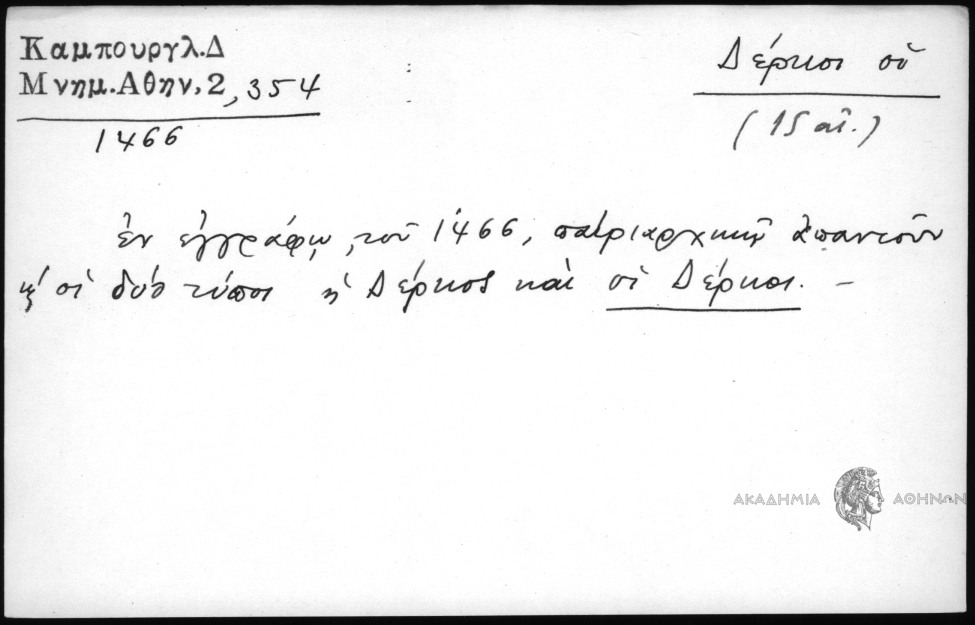 Καμπουργλ.Δ
Μνημ.Αθην.2,354
1466
Δέρκοι οἱ
(15 αἰ.)
ἐν ἐγγράφῳ τοῦ 1466, πατριαρχικῷ ἀπαντοῦν
κ' οἱ δύο τύποι ἡ Δέρκος καὶ οἱ Δέρκοι. –
ΑΚΑΔΗΜΙΑ ΑΘΗΝΩΝ